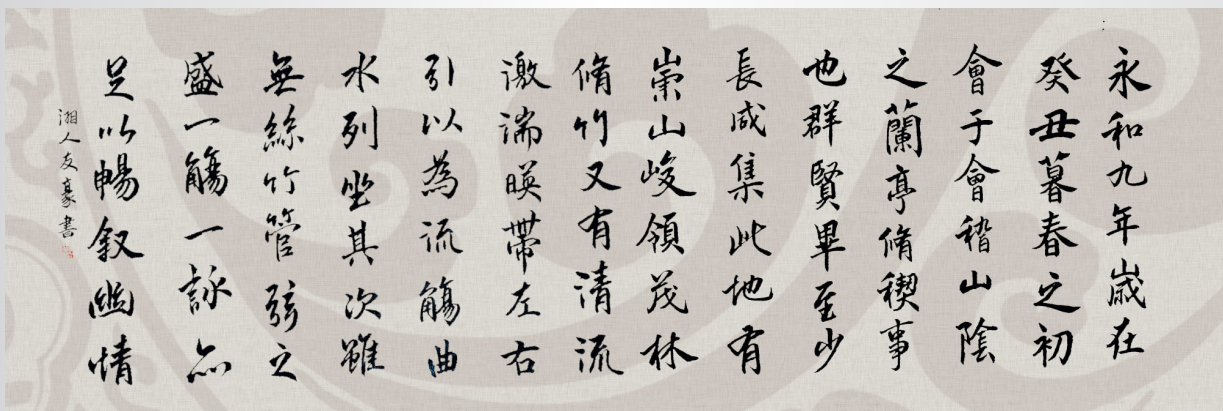 永和九年歲在
癸丑暮春之初
會于會稽山陰
之蘭亭脩稧事
也群賢畢至少
長咸集此地有
崇山峻領茂林
脩竹又有清流
激湍暎帶左右
引以為流觴曲
水列坐其次雖
無絲竹管弦之
盛一觴一詠亦
足以暢敘幽情
湘人友豪書